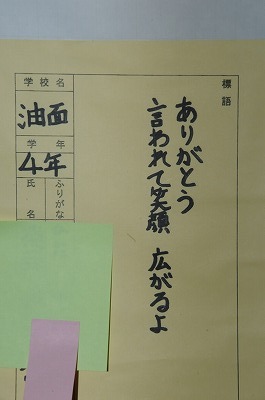 標語
ありがとう
言われて笑顔 広がるよ
学校名
油面
学年
4年
ふりがな
氏名